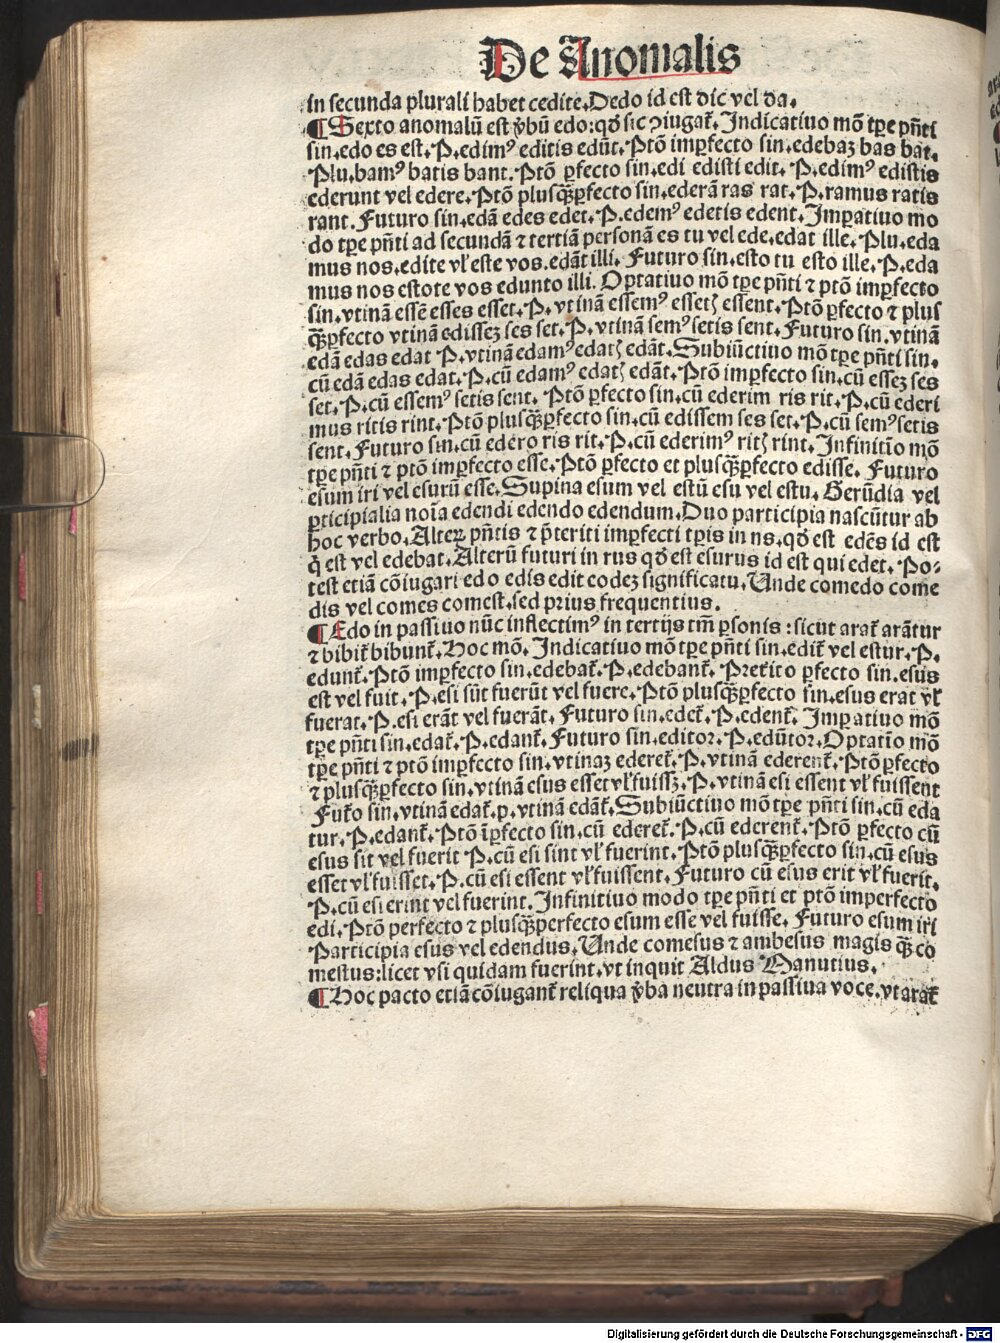 De Anomalis
in secunda plurali habet cedite. Dedo id est dic vel da.
¶ Sexto anomalū est v̄bū edo: qđ sic ꝯiugaẗ. Indicatiuo mō tꝑe pñti
sin. edo es est. P. edimꝰ editis edūt. Ptō imꝑfecto sin. edebaȝ bas bat.
Plu. bamꝰ batis bant. Ptō ꝑfecto sin. edi edisti edit. P. edimꝰ edistis
ederunt vel edere. Ptō plusq̄ꝑfecto sin. ederā ras rat. P. ramus ratis
rant. Futuro sin. edā edes edet. P. edemꝰ edetis edent. Imꝑatiuo mo
do tꝑe pñti ad secundā ⁊ tertiā personā es tu vel ede. edat ille. Plu. eda
mus nos. edite vl̕ este vos. edāt illi. Futuro sin. esto tu esto ille. P. eda
mus nos estote vos edunto illi. Optatiuo mō tꝑe pñti ⁊ ptō imꝑfecto
sin. vtinā essē esses esset. P. vtinā essemꝰ essetꝭ essent. Ptō ꝑfecto ⁊ plus
q̄ꝑfecto vtinā edisseȝ ses set. P. vtinā semꝰ setis sent. Futuro sin. vtinā
edā edas edat P. vtinā edamꝰ edatꝭ edāt. Subiūctiuo mō tꝑe pñti sin.
cū edā edas edat. P. cū edamꝰ edatꝭ edāt. Ptō imꝑfecto sin. cū esseȝ ses
set. P. cū essemꝰ setis sent. Ptō ꝑfecto sin. cū ederim ris rit. P. cū ederi
mus ritis rint. Ptō plusq̄ꝑfecto sin. cū edissem ses set. P. cū semꝰ setis
sent. Futuro sin. cū edero ris rit. P. cū ederimꝰ ritꝭ rint. Infinitīo mō
tꝑe pñti ⁊ ptō imꝑfecto esse. Ptō ꝑfecto et plusq̄ꝑfecto edisse. Futuro
esum iri vel esurū esse. Supina esum vel estū esu vel estu. Gerūdia vel
ꝑticipialia noīa edendi edendo edendum. Duo participia nascūtur ab
hoc verbo. Alteꝝ pñtis ⁊ p̄teriti imꝑfecti tꝑis in ns. qđ est edēs id est
q̇ est vel edebat. Alterū futuri in rus qđ est esurus id est qui edet. Po⸗
test etiā cōiugari edo edis edit eodeȝ significatu. Unde comedo come
dis vel comes comest. sed prius frequentius.
¶ Edo in passiuo nūc inflectimꝰ in tertijs tm̄ ꝑsonis : sicut araẗ arātur
⁊ bibiẗ bibunẗ. Hoc mō. Indicatiuo mō tꝑe pñti sin. ediẗ vel estur. P.
edunẗ. Ptō imꝑfecto sin. edebaẗ. P. edebanẗ. Preṫito ꝑfecto sin. esus
est vel fuit. P. esi sūt fuerūt vel fuere. Ptō plusq̄ꝑfecto sin. esus erat vl̕
fuerat. P. esi erāt vel fuerāt. Futuro sin. edeẗ. P. edenẗ. Imꝑatiuo mō
tꝑe pñti sin. edaẗ. P. edanẗ. Futuro sin. editor. P. edūtor. Optatīo mō
tꝑe pñti ⁊ ptō imꝑfecto sin. vtinaȝ edereẗ. P. vtinā ederenẗ. Ptō ꝑfecto
⁊ plusq̄ꝑfecto sin. vtinā esus esset vl̕ fuissȝ. P. vtinā esi essent vl̕ fuissent
Fuẗo sin. vtinā edaẗ. p. vtinā edāẗ. Subiūctiuo mō tꝑe pñti sin. cū eda
tur. P. edanẗ. Ptō īꝑfecto sin. cū edereẗ. P. cū ederenẗ. Ptō ꝑfecto cū
esus sit vel fuerit P. cū esi sint vl̕ fuerint. Ptō plusq̄ꝑfecto sin. cū esus
esset vl̕ fuisset. P. cū esi essent vl̕ fuissent. Futuro cū esus erit vl̕ fuerit.
P. cū esi erint vel fuerint. Infinitiuo modo tꝑe pñti et ptō imperfecto
edi. Ptō perfecto ⁊ plusq̄perfecto esum esse vel fuisse. Futuro esum iri
Participia esus vel edendus. Unde comesus ⁊ ambesus magis q̄ȝ co
mestus: licet vsi quidam fuerint. vt inquit Aldus Manutius.
¶ Hoc pacto etiā cōiuganẗ reliqua v̄ba neutra in passiua voce. vt araẗ
Digitalisierung gefördert durch die Deutsche Forschungsgemeinschaft - DFG